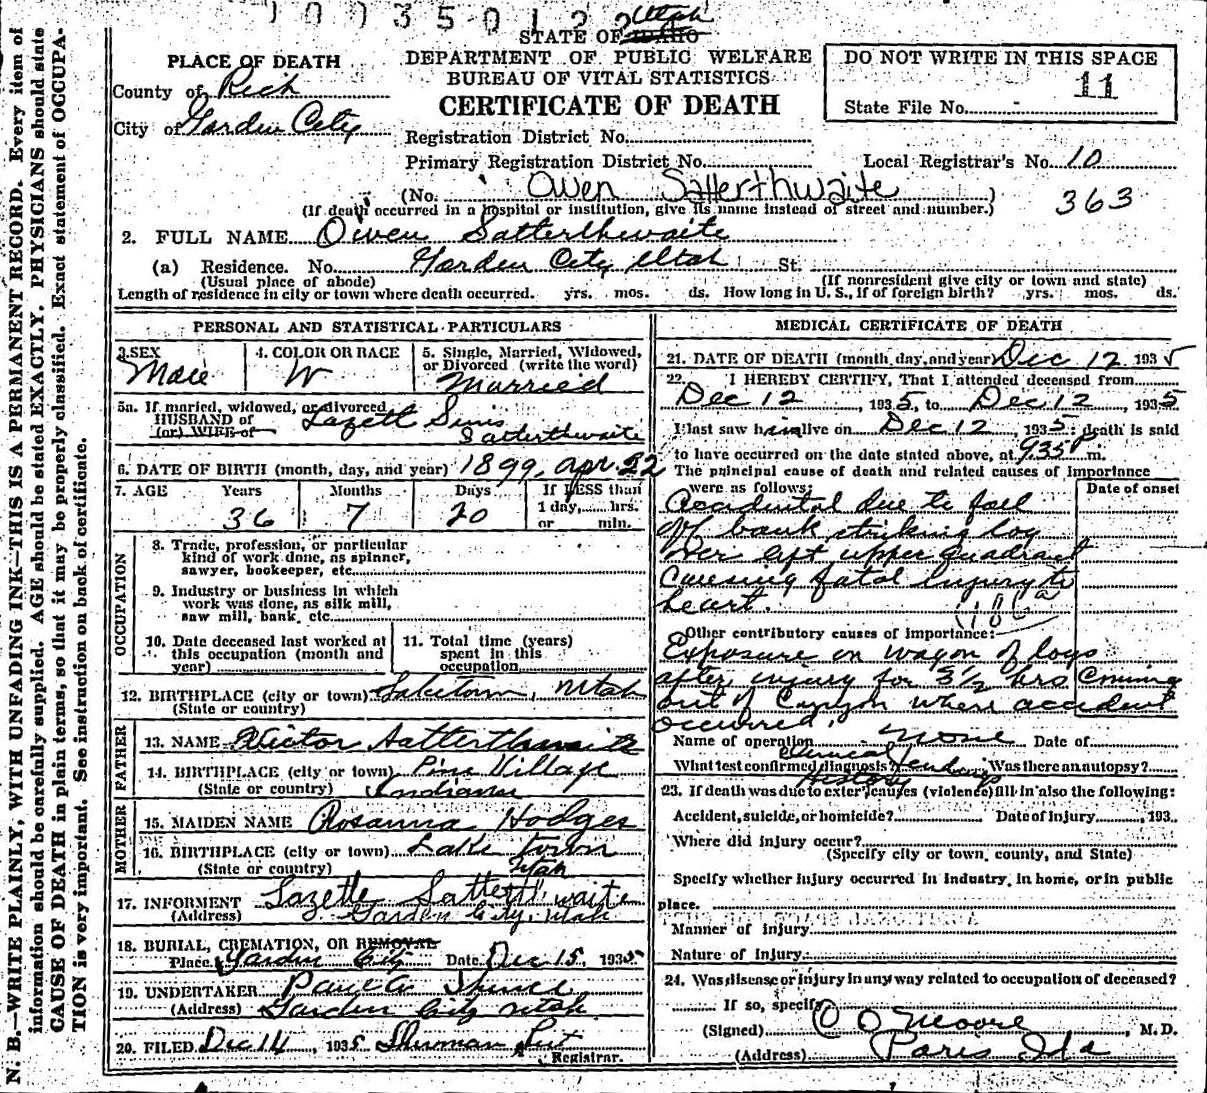 10035012
Utah
STATE OF IDAHO
DEPARTMENT OF PUBLIC WELFARE
BUREAU OF VITAL STATISTICS
CERTIFICATE OF DEATH
PLACE OF DEATH
County of Rich
City of Garden City
DO NOT WRITE IN THIS SPACE
11
State File No.
Registration District No.
Primary Registration District No. Local Registrar's No. 10
(No. Owen Satterthwaite )
363
(If death occurred in a hospital or institution, give its name instead of street and number.)
2. FULL NAME Owen Satterthwaite
(a) Residence. No. Garden City Utah St.
(Usual place of abode) (If nonresident give city or town and state)
Length of residence in city or town where death occurred. yrs. mos. ds. How long in U. S., if of foreign birth? yrs. mos. ds.
PERSONAL AND STATISTICAL PARTICULARS
3. SEX 4. COLOR OR RACE 5. Single, Married, Widowed, or Divorced (write the word)
Male W Married
5a. If married, widowed, or divorced
HUSBAND of Lazett Sims
(or) WIFE of Satterthwaite
6. DATE OF BIRTH (month, day, and year) 1899, Apr. 22
7. AGE Years Months Days If LESS than
1 day, hrs.
36 7 20 or min.
OCCUPATION
8. Trade, profession, or particular
kind of work done, as spinner,
sawyer, bookeeper, etc.
9. Industry or business in which
work was done, as silk mill,
saw mill, bank, etc.
10. Date deceased last worked at
this occupation (month and
year)
11. Total time (years)
spent in this
occupation
12. BIRTHPLACE (city or town) Laketown, Utah
(State or country)
FATHER
13. NAME Victor Satterthwaite
14. BIRTHPLACE (city or town) Pine Village
(State or country) Indiana
MOTHER
15. MAIDEN NAME Rosanna Hodges
16. BIRTHPLACE (city or town) Lake town
(State or country) Utah
17. INFORMENT Lazette Satterthwaite
(Address) Garden City, Utah
18. BURIAL, CREMATION, OR REMOVAL
Place Garden City Date Dec 15, 1935
19. UNDERTAKER Paul A
(Address) Garden City Utah
20. FILED Dec 14, 1935 Sherman
Registrar.
MEDICAL CERTIFICATE OF DEATH
21. DATE OF DEATH (month, day, and year) Dec 12 1935
22. I HEREBY CERTIFY, That I attended deceased from
Dec 12, 1935, to Dec 12, 1935
I last saw him alive on Dec 12, 1935; death is said
to have occurred on the date stated above, at 935 P m.
The principal cause of death and related causes of importance
were as follows: Date of onset
Accidental due to fall
off bank striking log
over left upper quadrant
causing fatal injury to
heart.
186a
Other contributory causes of importance:
Exposure on wagon of logs
after injury for 3 1/2 hrs coming
out of Canyon where accident
occurred.
Name of operation None Date of
What test confirmed diagnosis? Clinical findings Was there an autopsy?
History
23. If death was due to exter. causes (violence) fill in also the following:
Accident, suicide, or homicide? Date of injury , 193
Where did injury occur?
(Specify city or town, county, and State)
Specify whether injury occurred in industry, in home, or in public
place.
Manner of injury
Nature of injury
24. Was disease or injury in any way related to occupation of deceased?
If so, specify
(Signed) C O Moore, M. D.
(Address) Paris Ida
N. B.—WRITE PLAINLY, WITH UNFADING INK—THIS IS A PERMANENT RECORD. Every item of
information should be carefully supplied. AGE should be stated EXACTLY. PHYSICIANS should state
CAUSE OF DEATH in plain terms, so that it may be properly classified. Exact statement of OCCUPA-
TION is very important. See instruction on back of certificate.